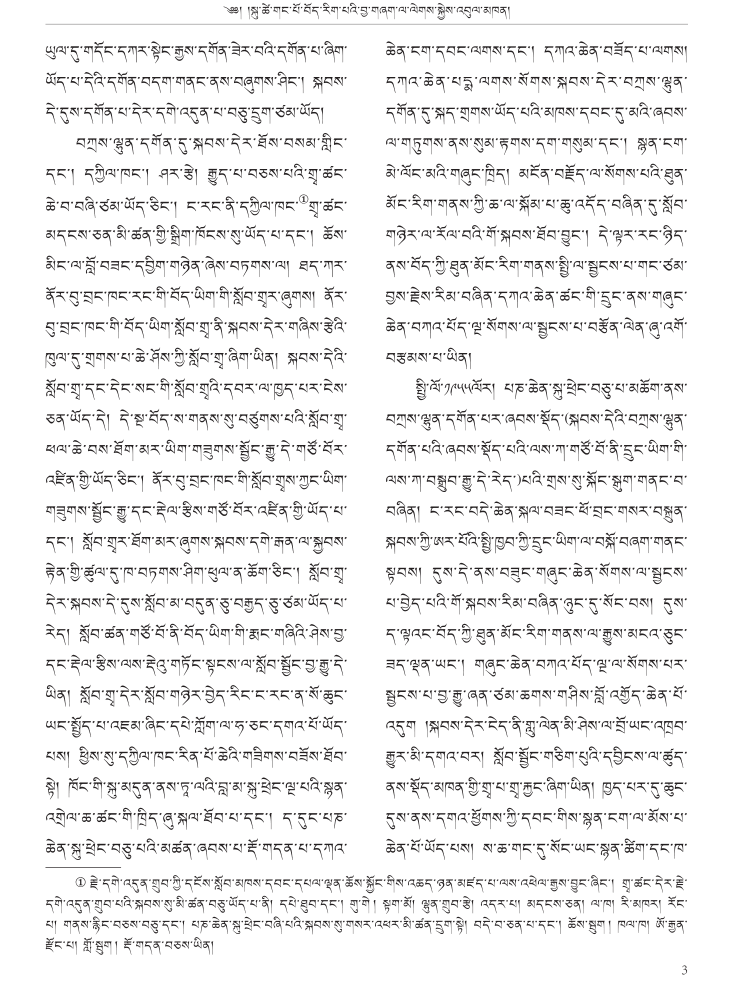 ༄༅། །སྐུ་ཚེ་གང་པོ་བོད་རིག་པའི་བྱ་གཞག་ལ་ལེགས་སྐྱེས་འབུལ་མཁན།
ཡུལ་དུ་གདོང་དཀར་སྟེང་རྒྱས་དགོན་ཟེར་བའི་དགོན་པ་ཞིག་
ཡོད་པ་དེའི་དགོན་བདག་གནང་ནས་བཞུགས་ཤིང་། སྐབས་
དེ་དུས་དགོན་པ་དེར་དགེ་འདུན་པ་བཅུ་དྲུག་ཙམ་ཡོད།
བཀྲས་ལྷུན་དགོན་དུ་སྐབས་དེར་ཐོས་བསམ་གླིང་
དང་། དཀྱིལ་ཁང་། ཤར་རྩེ། རྒྱུད་པ་བཅས་པའི་གྲྭ་ཚང་
ཆེ་བ་བཞི་ཙམ་ཡོད་ཅིང་། ང་རང་ནི་དཀྱིལ་ཁང་①གྲྭ་ཚང་
མདངས་ཅན་མི་ཚན་གྱི་སྒྲིག་ཁོངས་སུ་ཡོད་པ་དང་། ཆོས་
མིང་ལ་བློ་བཟང་དབྱིག་གཉེན་ཞེས་བཏགས་ལ། ཐད་ཀར་
ནོར་བུ་བྲང་ཁང་རང་གི་བོད་ཡིག་གི་སློབ་གྲྭར་ཞུགས། ནོར་
བུ་བྲང་ཁང་གི་བོད་ཡིག་སློབ་གྲྭ་ནི་སྐབས་དེར་གཞིས་རྩེའི་
ཁུལ་དུ་གྲགས་པ་ཆེ་ཤོས་ཀྱི་སློབ་གྲྭ་ཞིག་ཡིན། སྐབས་དེའི་
སློབ་གྲྭ་དང་དེང་སང་གི་སློབ་གྲྭའི་དབར་ལ་ཁྱད་པར་ངེས་
ཅན་ཡོད་དེ། དེ་སྔ་བོད་ས་གནས་སུ་བཙུགས་པའི་སློབ་གྲྭ་
ཕལ་ཆེ་བས་ཐོག་མར་ཡིག་གཟུགས་སྦྱོང་རྒྱུ་དེ་གཙོ་བོར་
འཛིན་གྱི་ཡོད་ཅིང་། ནོར་བུ་བྲང་ཁང་གི་སློབ་གྲྭས་ཀྱང་ཡིག་
གཟུགས་སྦྱོང་རྒྱུ་དང་རྡེལ་རྩིས་གཙོ་བོར་འཛིན་གྱི་ཡོད་པ་
དང་། སློབ་གྲྭར་ཐོག་མར་ཞུགས་སྐབས་དགེ་རྒན་ལ་སྐྱབས་
རྟེན་གྱི་ཚུལ་དུ་ཁ་བཏགས་ཤིག་ཕུལ་ན་ཆོག་ཅིང་། སློབ་གྲྭ་
དེར་སྐབས་དེ་དུས་སློབ་མ་བདུན་ཅུ་བརྒྱད་ཅུ་ཙམ་ཡོད་པ་
རེད། སློབ་ཚན་གཙོ་བོ་ནི་བོད་ཡིག་གི་རྨང་གཞིའི་ཤེས་བྱ་
དང་རྡེལ་རྩིས་ལས་རྡེའུ་གཏོང་སྟངས་ལ་སློབ་སྦྱོང་བྱ་རྒྱུ་དེ་
ཡིན། སློབ་གྲྭ་དེར་སློབ་གཉེར་བྱེད་རིང་ང་རང་ན་སོ་ཆུང་
ཡང་སྤྱོད་པ་འཇམ་ཞིང་དཔེ་ཀློག་ལ་ཧ་ཅང་དགའ་པོ་ཡོད་
པས། ཕྱིས་སུ་དཀྱིལ་ཁང་རིན་པོ་ཆེའི་གཟིགས་བཟོས་ཐོབ་
སྟེ། ཁོང་གི་སྐུ་མདུན་ནས་ཏཱ་ལའི་བླ་མ་སྐུ་ཕྲེང་ལྔ་པའི་སྙན་
འགྲེལ་ཆ་ཚང་གི་ཁྲིད་ཞུ་སྐལ་ཐོབ་པ་དང་། ད་དུང་པཎ་
ཆེན་སྐུ་ཕྲེང་བཅུ་པའི་མཚན་ཞབས་པ་རྡོ་གདན་པ་དཀའ་
ཆེན་ངག་དབང་ལགས་དང་། དཀའ་ཆེན་བཟོད་པ་ལགས།
དཀའ་ཆེན་པདྨ་ལགས་སོགས་སྐབས་དེར་བཀྲས་ལྷུན་
དགོན་དུ་སྐད་གྲགས་ཡོད་པའི་མཁས་དབང་དུ་མའི་ཞབས་
ལ་གཏུགས་ནས་སུམ་རྟགས་དག་གསུམ་དང་། སྙན་ངག་
མེ་ལོང་མའི་གཞུང་ཁྲིད། མངོན་བརྗོད་ལ་སོགས་པའི་ཐུན་
མོང་རིག་གནས་ཀྱི་ཆ་ལ་སྐོམ་པ་ཆུ་འདོད་བཞིན་དུ་སློབ་
གཉེར་ལ་རོལ་བའི་གོ་སྐབས་ཐོབ་བྱུང་། དེ་ལྟར་རང་ཉིད་
ནས་བོད་ཀྱི་ཐུན་མོང་རིག་གནས་སྤྱི་ལ་སྦྱངས་པ་གང་ཙམ་
བྱས་རྗེས་རིམ་བཞིན་དཀའ་ཆེན་ཚང་གི་དྲུང་ནས་གཞུང་
ཆེན་བཀའ་པོད་ལྔ་སོགས་ལ་སྦྱངས་པ་བརྩོན་ལེན་ཞུ་འགོ་
བརྩམས་པ་ཡིན།
སྤྱི་ལོ་༡༩༥༥ལོར། པཎ་ཆེན་སྐུ་ཕྲེང་བཅུ་པ་མཆོག་ནས་
བཀྲས་ལྷུན་དགོན་པར་ཞབས་སྡོད་(སྐབས་དེའི་བཀྲས་ལྷུན་
དགོན་པའི་ཞབས་སྡོད་པའི་ལས་ཀ་གཙོ་བོ་ནི་དྲུང་ཡིག་གི་
ལས་ཀ་བསྒྲུབ་རྒྱུ་དེ་རེད་)པའི་གྲས་སུ་སྐོང་སྒྲུག་གནང་བ་
བཞིན། ང་རང་བདེ་ཆེན་སྐལ་བཟང་ཕོ་བྲང་གསར་བསྐྲུན་
སྐབས་ཀྱི་ཨར་པོའི་སྤྱི་ཁྱབ་ཀྱི་དྲུང་ཡིག་ལ་བསྐོ་བཞག་གནང་
སྟབས། དུས་དེ་ནས་བཟུང་གཞུང་ཆེན་སོགས་ལ་སྦྱངས་
པ་བྱེད་པའི་གོ་སྐབས་རིམ་བཞིན་ཉུང་དུ་སོང་བས། དུས་
ད་ལྟའང་བོད་ཀྱི་ཐུན་མོང་རིག་གནས་ལ་རྒྱུས་མངའ་ཅུང་
ཟད་ལྡན་ཡང་། གཞུང་ཆེན་བཀའ་པོད་ལྔ་ལ་སོགས་པར་
སྦྱངས་པ་བྱ་རྒྱུ་ཞན་ཙམ་ཆགས་གཤིས་བློ་འགྱོད་ཆེན་པོ་
འདུག །སྐབས་དེར་ངེད་ནི་གླུ་ལེན་མི་ཤེས་ལ་བྲོ་ཡང་འཁྲབ་
རྒྱུར་མི་དགའ་བར། སློབ་སྦྱོང་གཅིག་པུའི་དབྱིངས་ལ་ཚུད་
ནས་སྡོད་མཁན་གྱི་གྲྭ་པ་གྲྭ་རྐྱང་ཞིག་ཡིན། ཁྱད་པར་དུ་ཆུང་
དུས་ནས་དགའ་ཕྱོགས་ཀྱི་དབང་གིས་སྙན་ངག་ལ་མོས་པ་
ཆེན་པོ་ཡོད་པས། ས་ཆ་གང་དུ་སོང་ཡང་སྙན་ཚིག་དང་ཁ་
① རྗེ་དགེ་འདུན་གྲུབ་ཀྱི་དངོས་སློབ་མཁས་དབང་དཔལ་ལྡན་ཆོས་སྐྱོང་གིས་འཆད་ཉན་མཛད་པ་ལས་འཕེལ་རྒྱས་བྱུང་ཞིང་། གྲྭ་ཚང་དེར་རྗེ་
དགེ་འདུན་གྲུབ་པའི་སྐབས་སུ་མི་ཚན་བཅུ་ཡོད་པ་ནི། དཔེ་ཐུབ་དང་། གུ་གེ། སྟག་མོ། ལྷུན་གྲུབ་རྩེ། འདར་པ། མདངས་ཅན། ལ་ཁ། རི་མཁར། རོང་
པ། གནས་རྙིང་བཅས་བཅུ་དང་། པཎ་ཆེན་སྐུ་ཕྲེང་བཞི་པའི་སྐབས་སུ་གསར་འཕར་མི་ཚན་དྲུག་སྟེ། བདེ་བ་ཅན་པ་དང་། ཆོས་སྡུག། ཁལ་ཁ། ཨོ་རྒྱན་
རྫོང་པ། གློ་སྨུག། རྡོ་གདན་བཅས་ཡིན།
3